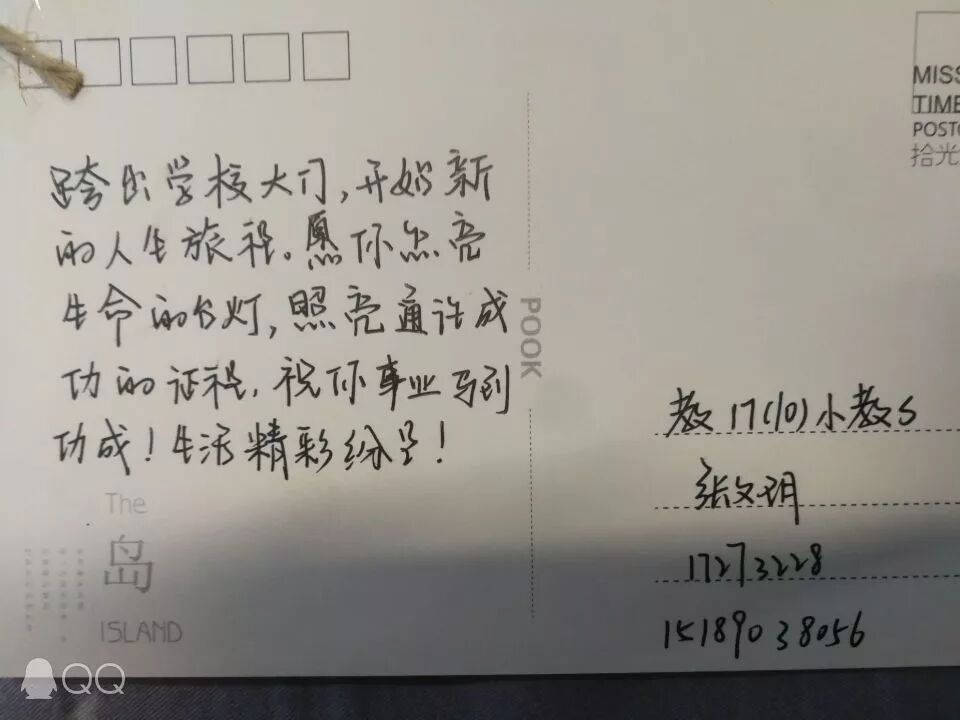 跨出学校大门,开始新
的人生旅程。愿你点亮
生命的台灯,照亮通许成
功的证程,祝你事业马到
功成!生活精彩纷呈!
The
岛
ISLAND
POOK
MISS
TIME
POST
拾光
教17(10)小教S
张文玥
17273228
15189038056
QQ